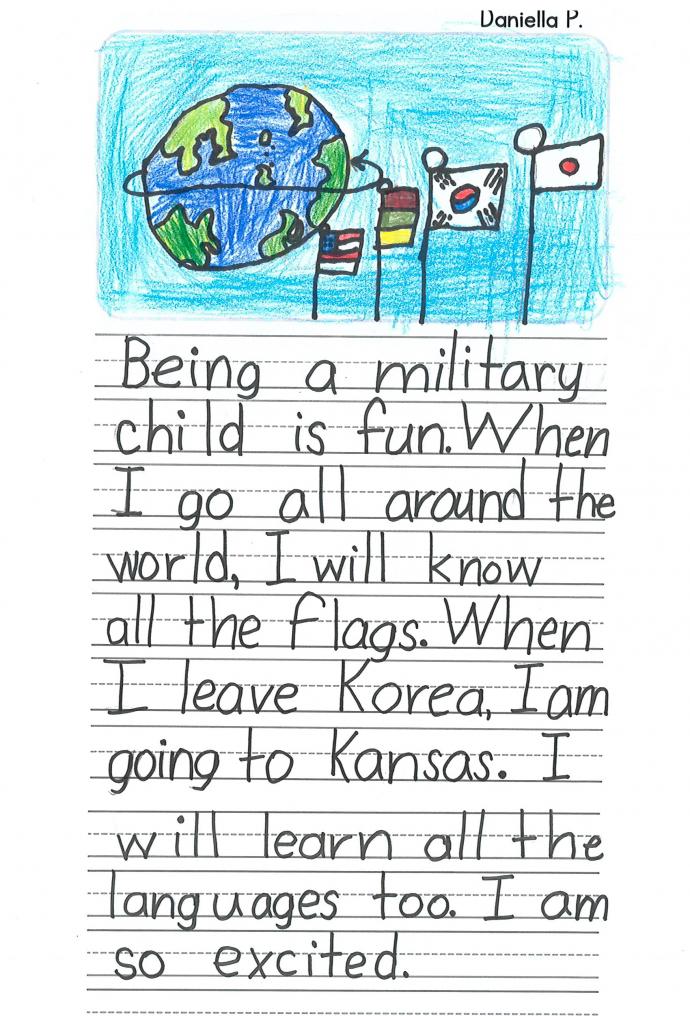 Daniella P.
Being a military
child is fun. When
I go all around the
world, I will know
all the flags. When
I leave Korea, I am
going to Kansas. I
will learn all the
languages too. I am
so excited.